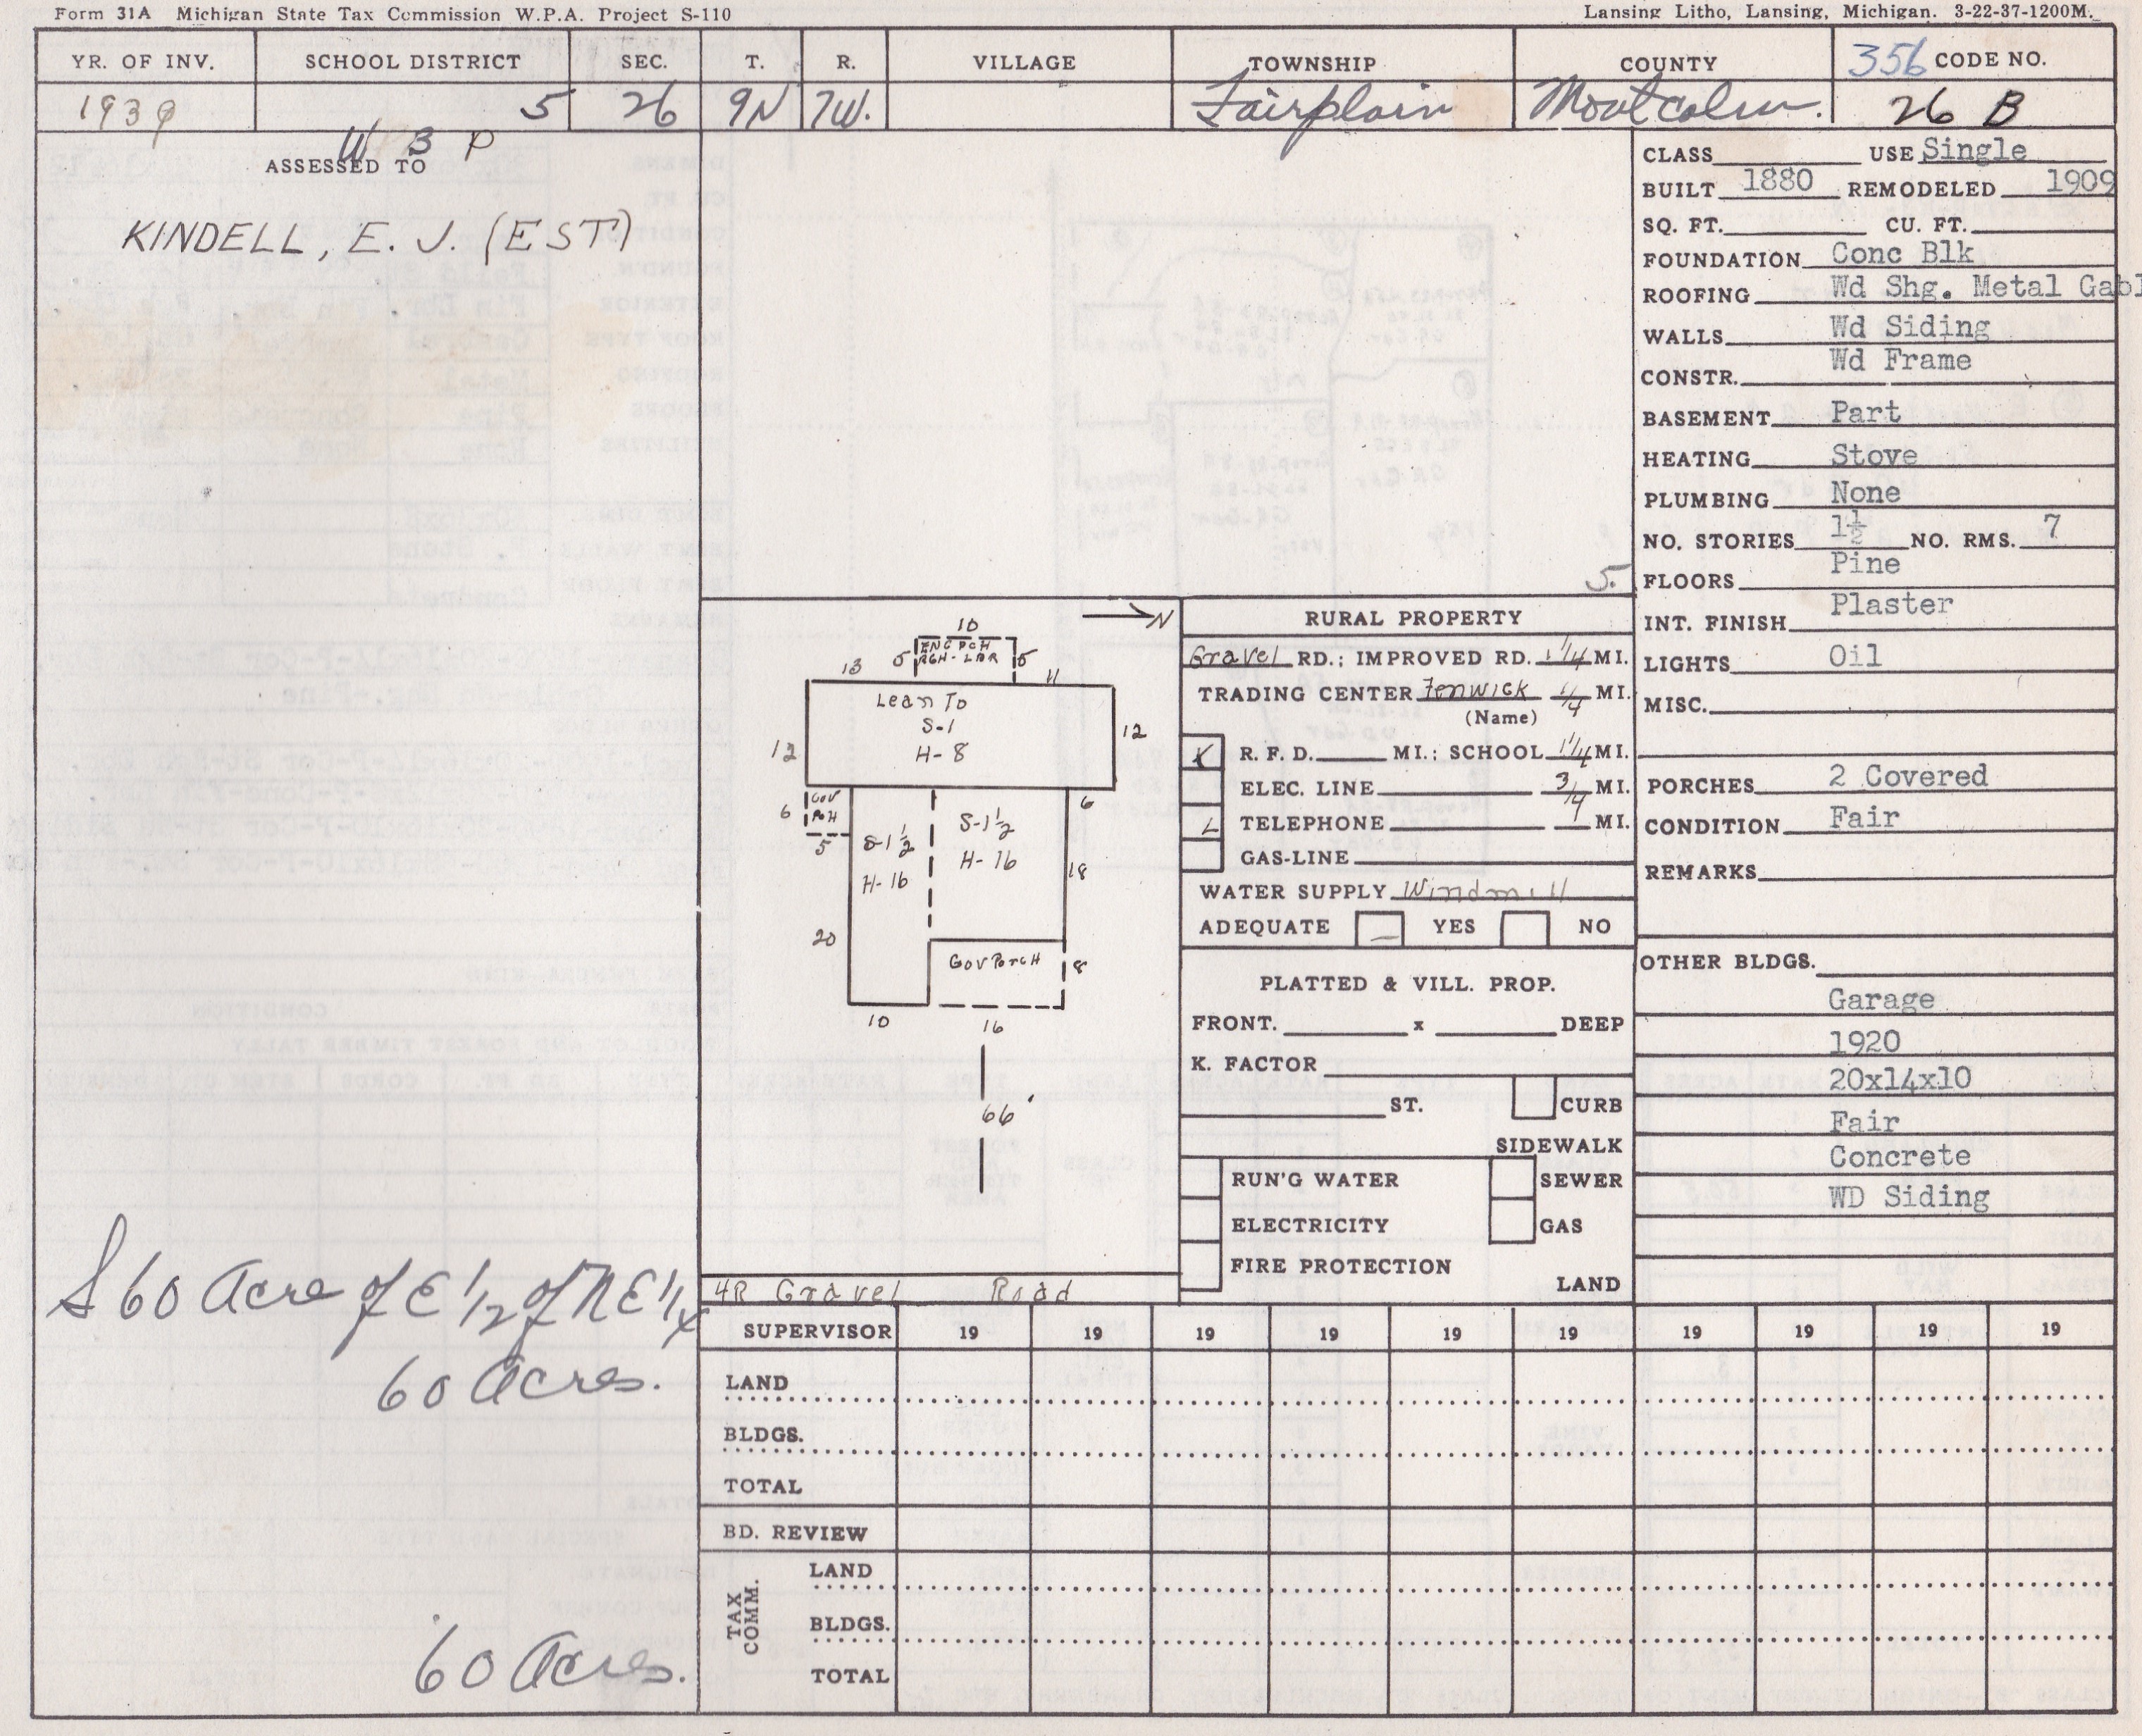 Form 31A Michigan State Tax Commission W.P.A. Project S-110
Lansing Litho, Lansing, Michigan. 3-22-37-1200M.
YR. OF INV. SCHOOL DISTRICT SEC. T. R. VILLAGE TOWNSHIP COUNTY 356 CODE NO.
1939 5 26 9N 7W. Fairplain Montcalm. 26 B
W B P
ASSESSED TO
KINDELL, E. J. (EST)
S 60 Acre of E 1/2 of N E 1/4
60 Acres.
60 Acres.
5.
N
10
ENC PCH
RGH-LBR
5 5
13 11
Lean To
S-1
H-8
12 12
6 Cov
PcH
5
6
S-1 1/2
H-16
S-1 1/2
H-16
18
20
Cov Porch
8
10 16
66'
4R Gravel Road
RURAL PROPERTY
Gravel RD.; IMPROVED RD. 1 1/4 MI.
TRADING CENTER Fenwick 1/4 MI.
(Name)
X R. F. D. MI.; SCHOOL 1 1/4 MI.
ELEC. LINE 3/4 MI.
L TELEPHONE MI.
GAS-LINE
WATER SUPPLY Windmill
ADEQUATE YES NO
PLATTED & VILL. PROP.
FRONT. x DEEP
K. FACTOR
ST. CURB
SIDEWALK
RUN'G WATER SEWER
ELECTRICITY GAS
FIRE PROTECTION
LAND
CLASS USE Single
BUILT 1880 REMODELED 1909
SQ. FT. CU. FT.
FOUNDATION Conc Blk
ROOFING Wd Shg. Metal Gabl
WALLS Wd Siding
CONSTR. Wd Frame
BASEMENT Part
HEATING Stove
PLUMBING None
NO. STORIES 1½ NO. RMS. 7
FLOORS Pine
INT. FINISH Plaster
LIGHTS Oil
MISC.
PORCHES 2 Covered
CONDITION Fair
REMARKS
OTHER BLDGS.
Garage
1920
20x14x10
Fair
Concrete
WD Siding
SUPERVISOR 19 19 19 19 19 19 19 19 19 19
LAND
BLDGS.
TOTAL
BD. REVIEW
TAX COMM.
LAND
BLDGS.
TOTAL